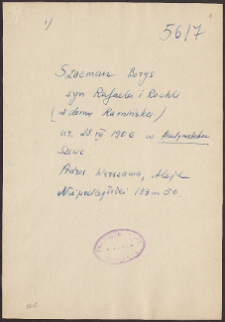 1)
56/7
Szacman Borys
syn Rafaela i Rochli
(z domu Kamińska)
ur. 23 VII 1906 w Białymstoku
Szewc
Przew. Warszawa, Aleje
Niepodległości 132 m 30